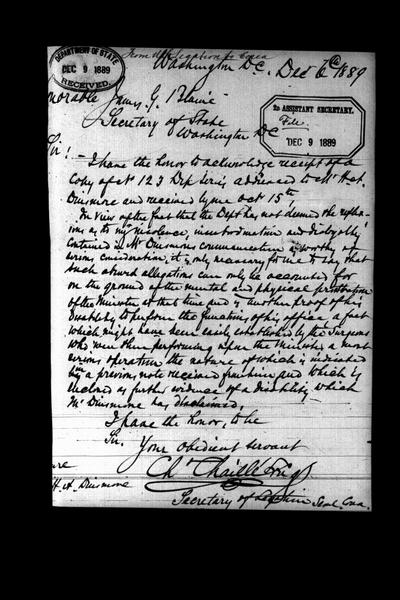 DEPARTMENT OF STATE
DEC 9 1889
RECEIVED.
From
Washington D.C. Dec 6th 1889
2D ASSISTANT SECRETARY.
File.
DEC 9 1889
norable James G. Blaine
Secretary of State
Washington DC
Sir!
I have the honor to acknowledge receipt of a
Copy of No 123 Dip. Series addressed to Mr H. A.
Dinsmore and received by me Oct 15th
In view of the fact that the Dept has not deemed the
as to my insolence, insubordination and disloyalty
contained in Mr Dinsmore's communication as worthy of
serious consideration, it is only necessary for me to say that
such absurd allegations can only be accounted for
on the ground of the mental and physical prostration
of the Minister at that time and is another proof of his
disability to perform the functions of his office a fact
which might have been easily established by the Surgeons
who were then performing upon the Minister a most
serious operation the nature of which is indicated
by a previous note received from him and which is
enclosed as further evidence of a disability which
Mr Dinsmore has disclaimed.
I have the honor, to be
Sir.
Your obedient servant
Ch. Chaillé Long
Secretary of Legation Seoul Corea.
ure
H. A. Dinsmore